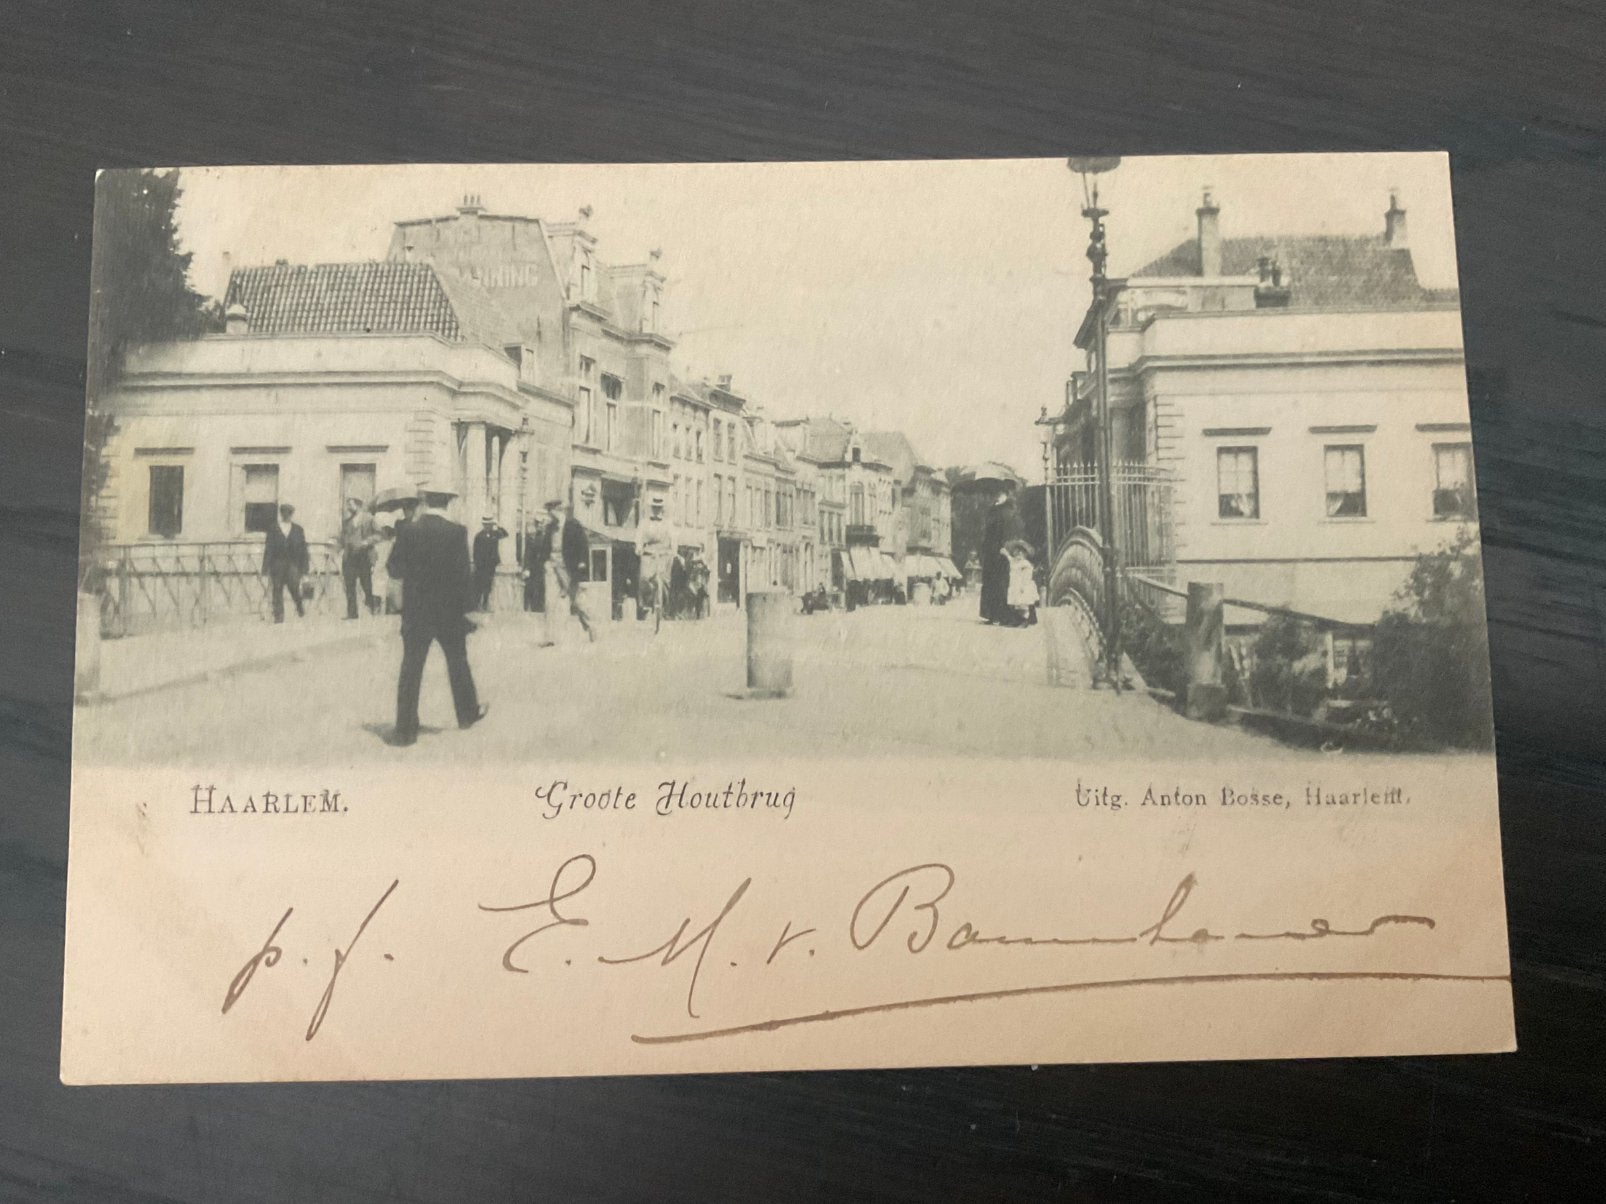 HAARLEM.
Groote Houtbrug
Uitg. Anton Bosse, Haarlem.
p. f. E. M. v.